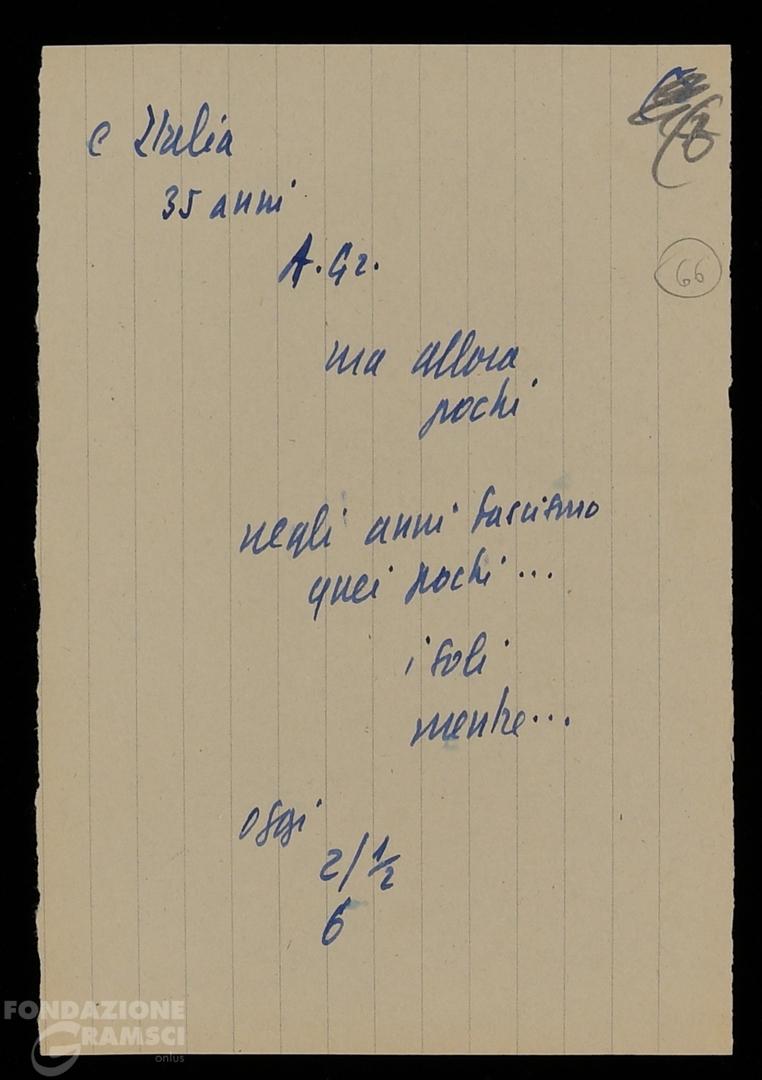 e Italia
35 anni
A. Gr.
66
ma allora
pochi
negli anni fascismo
quei pochi ...
i soli
mentre ...
oggi
2/ 1/2
6
FONDAZIONE
GRAMSCI
onlus